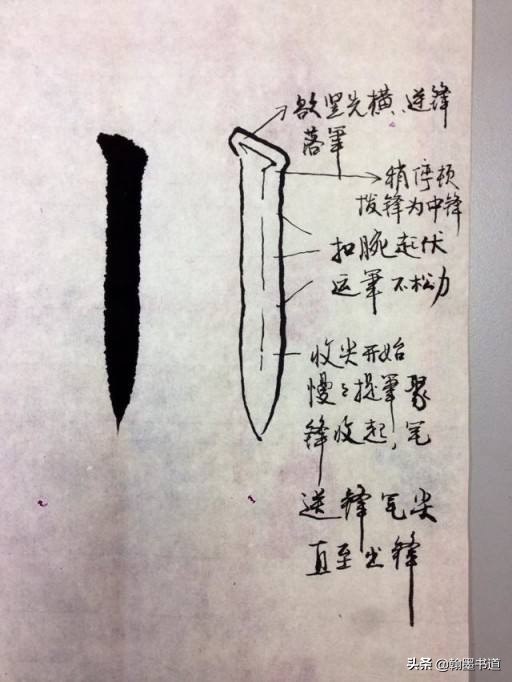 欲竖先横、逆锋
落筆
稍停顿
拨锋为中锋
扣腕起伏
运筆不松力
收尖开始
慢慢提筆聚
锋收起,笔
送锋笔尖
直至出锋
头条 @翰墨书道